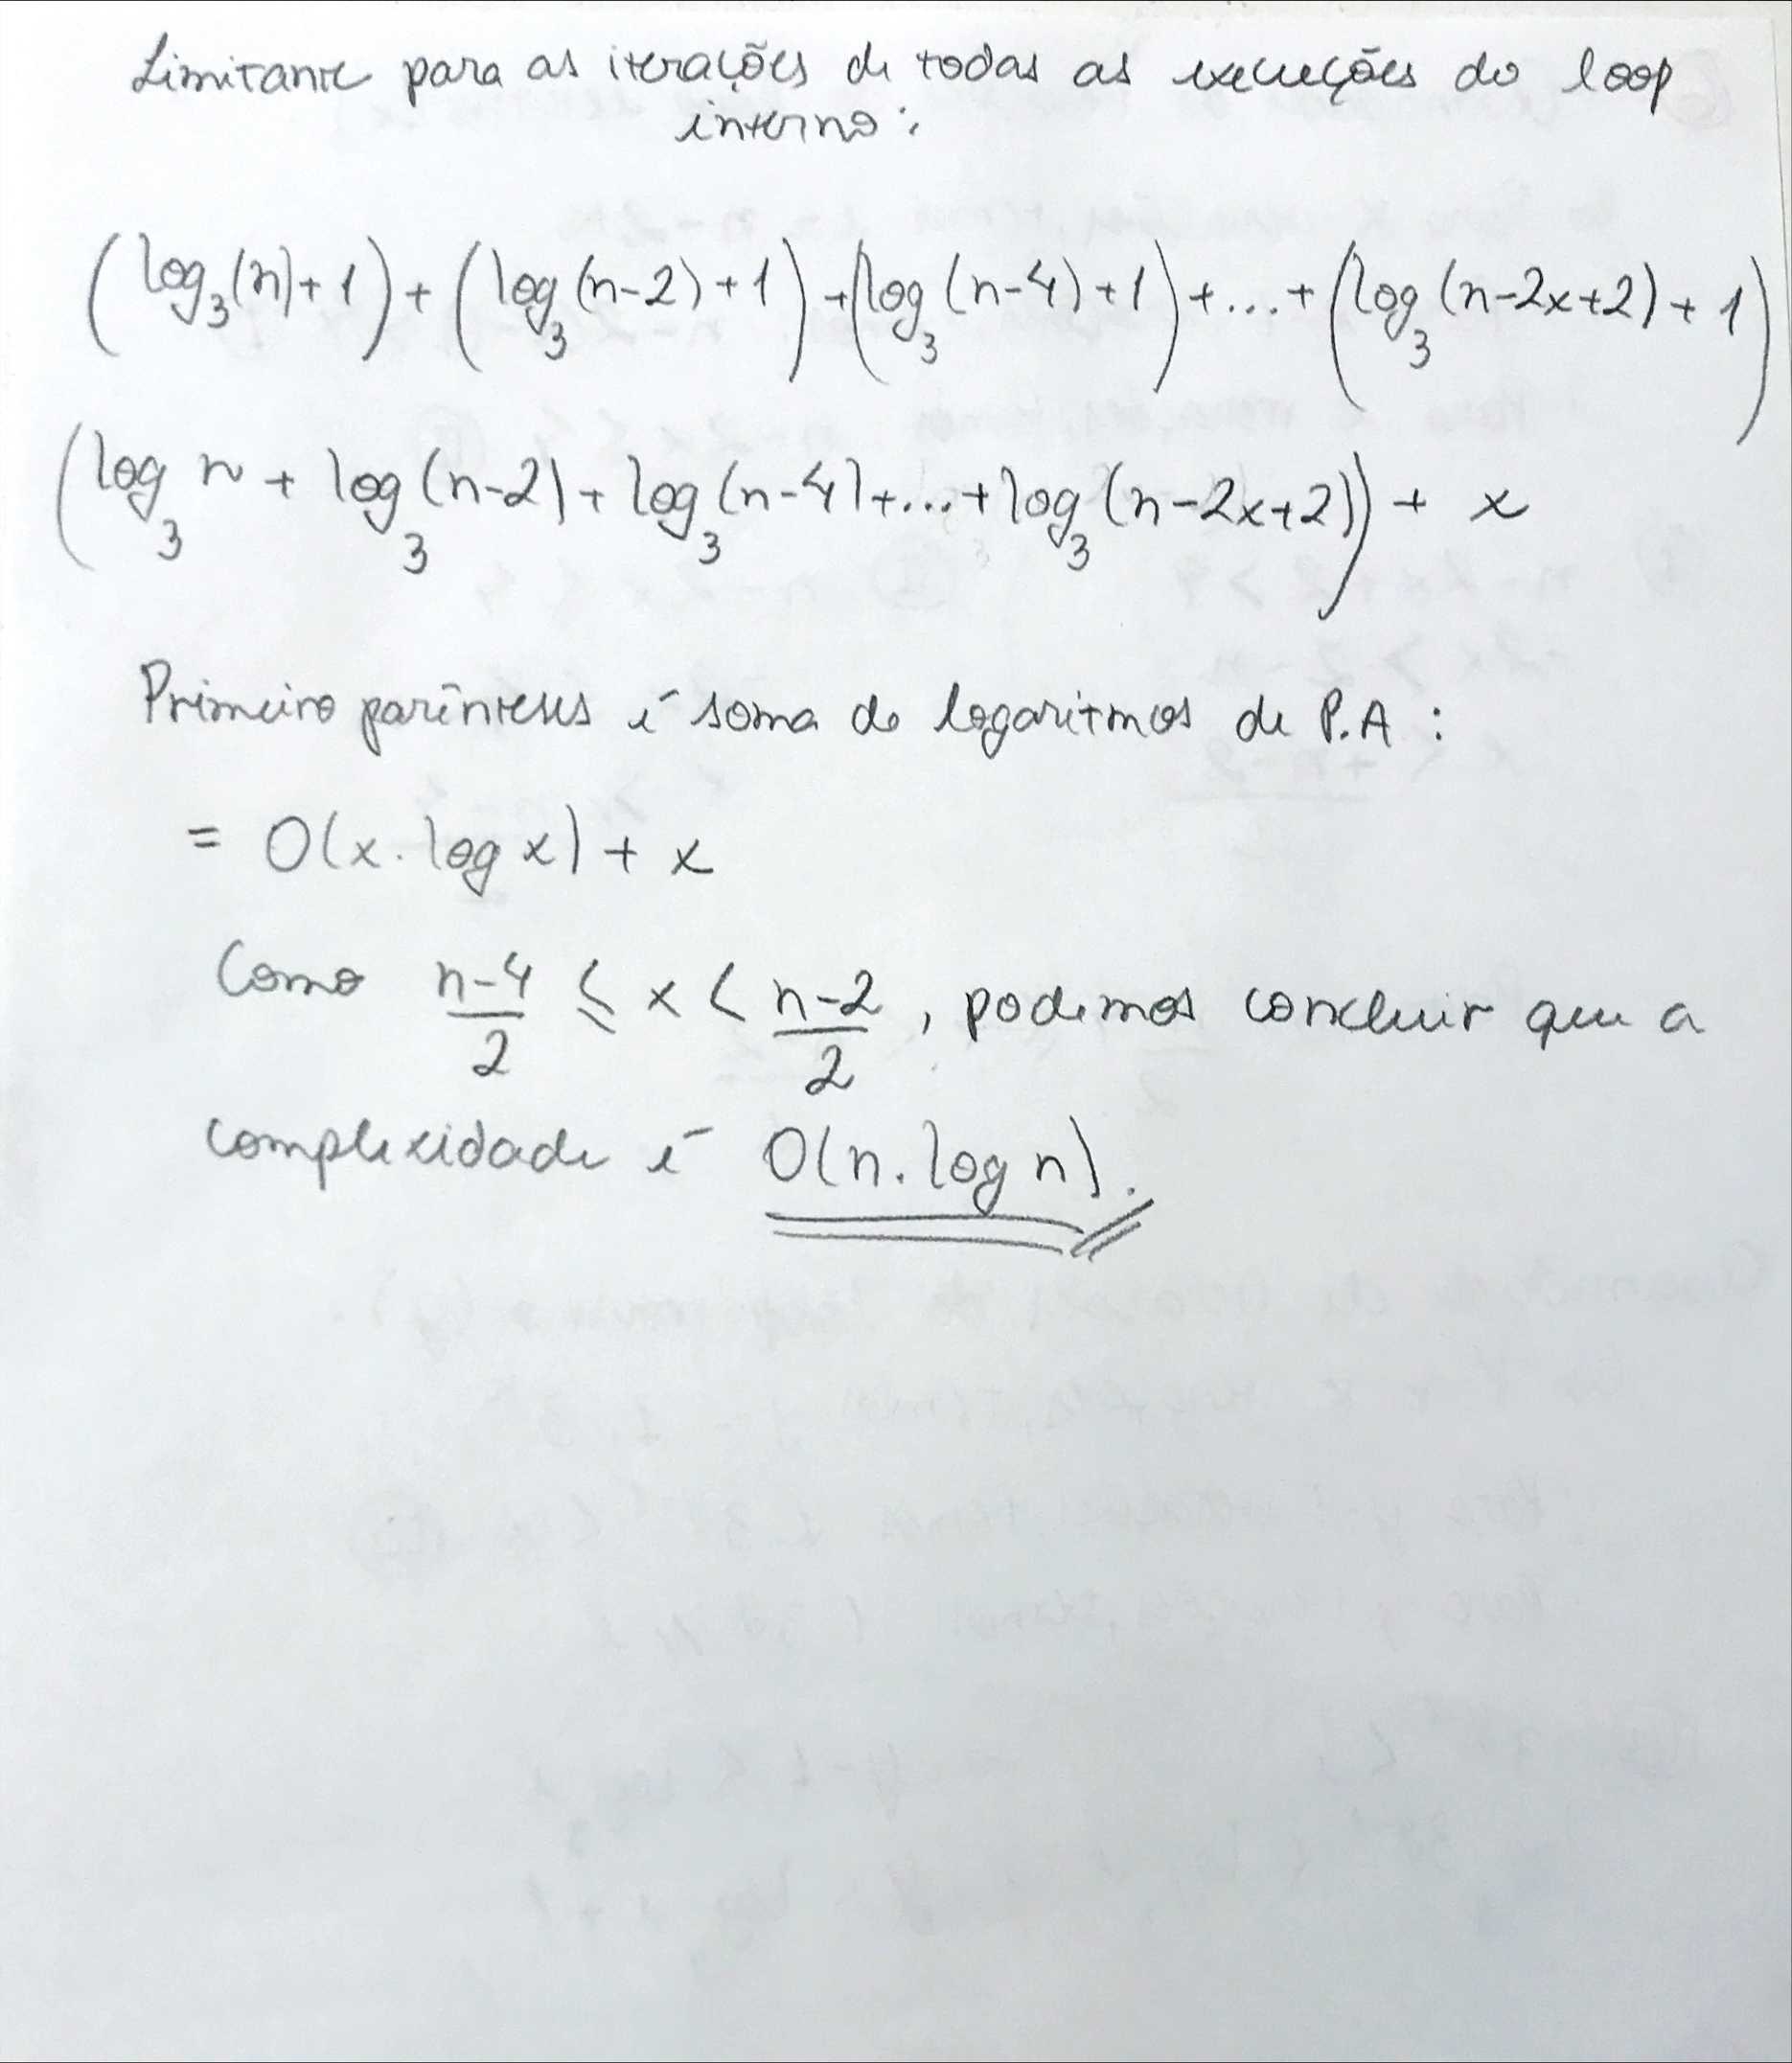 Limitante para as iterações de todas as execuções do loop
interno:
(log₃(n)+1) + (log₃(n-2)+1) + (log₃(n-4)+1) + ... + (log₃(n-2x+2)+1)
(log₃ n + log₃(n-2) + log₃(n-4) + ... + log₃(n-2x+2)) + x
Primeiro parênteses é soma de logaritmos de P.A :
= O(x. log x) + x
Como (n-4)/2 ≤ x < (n-2)/2, podemos concluir que a
complexidade é O(n. log n).